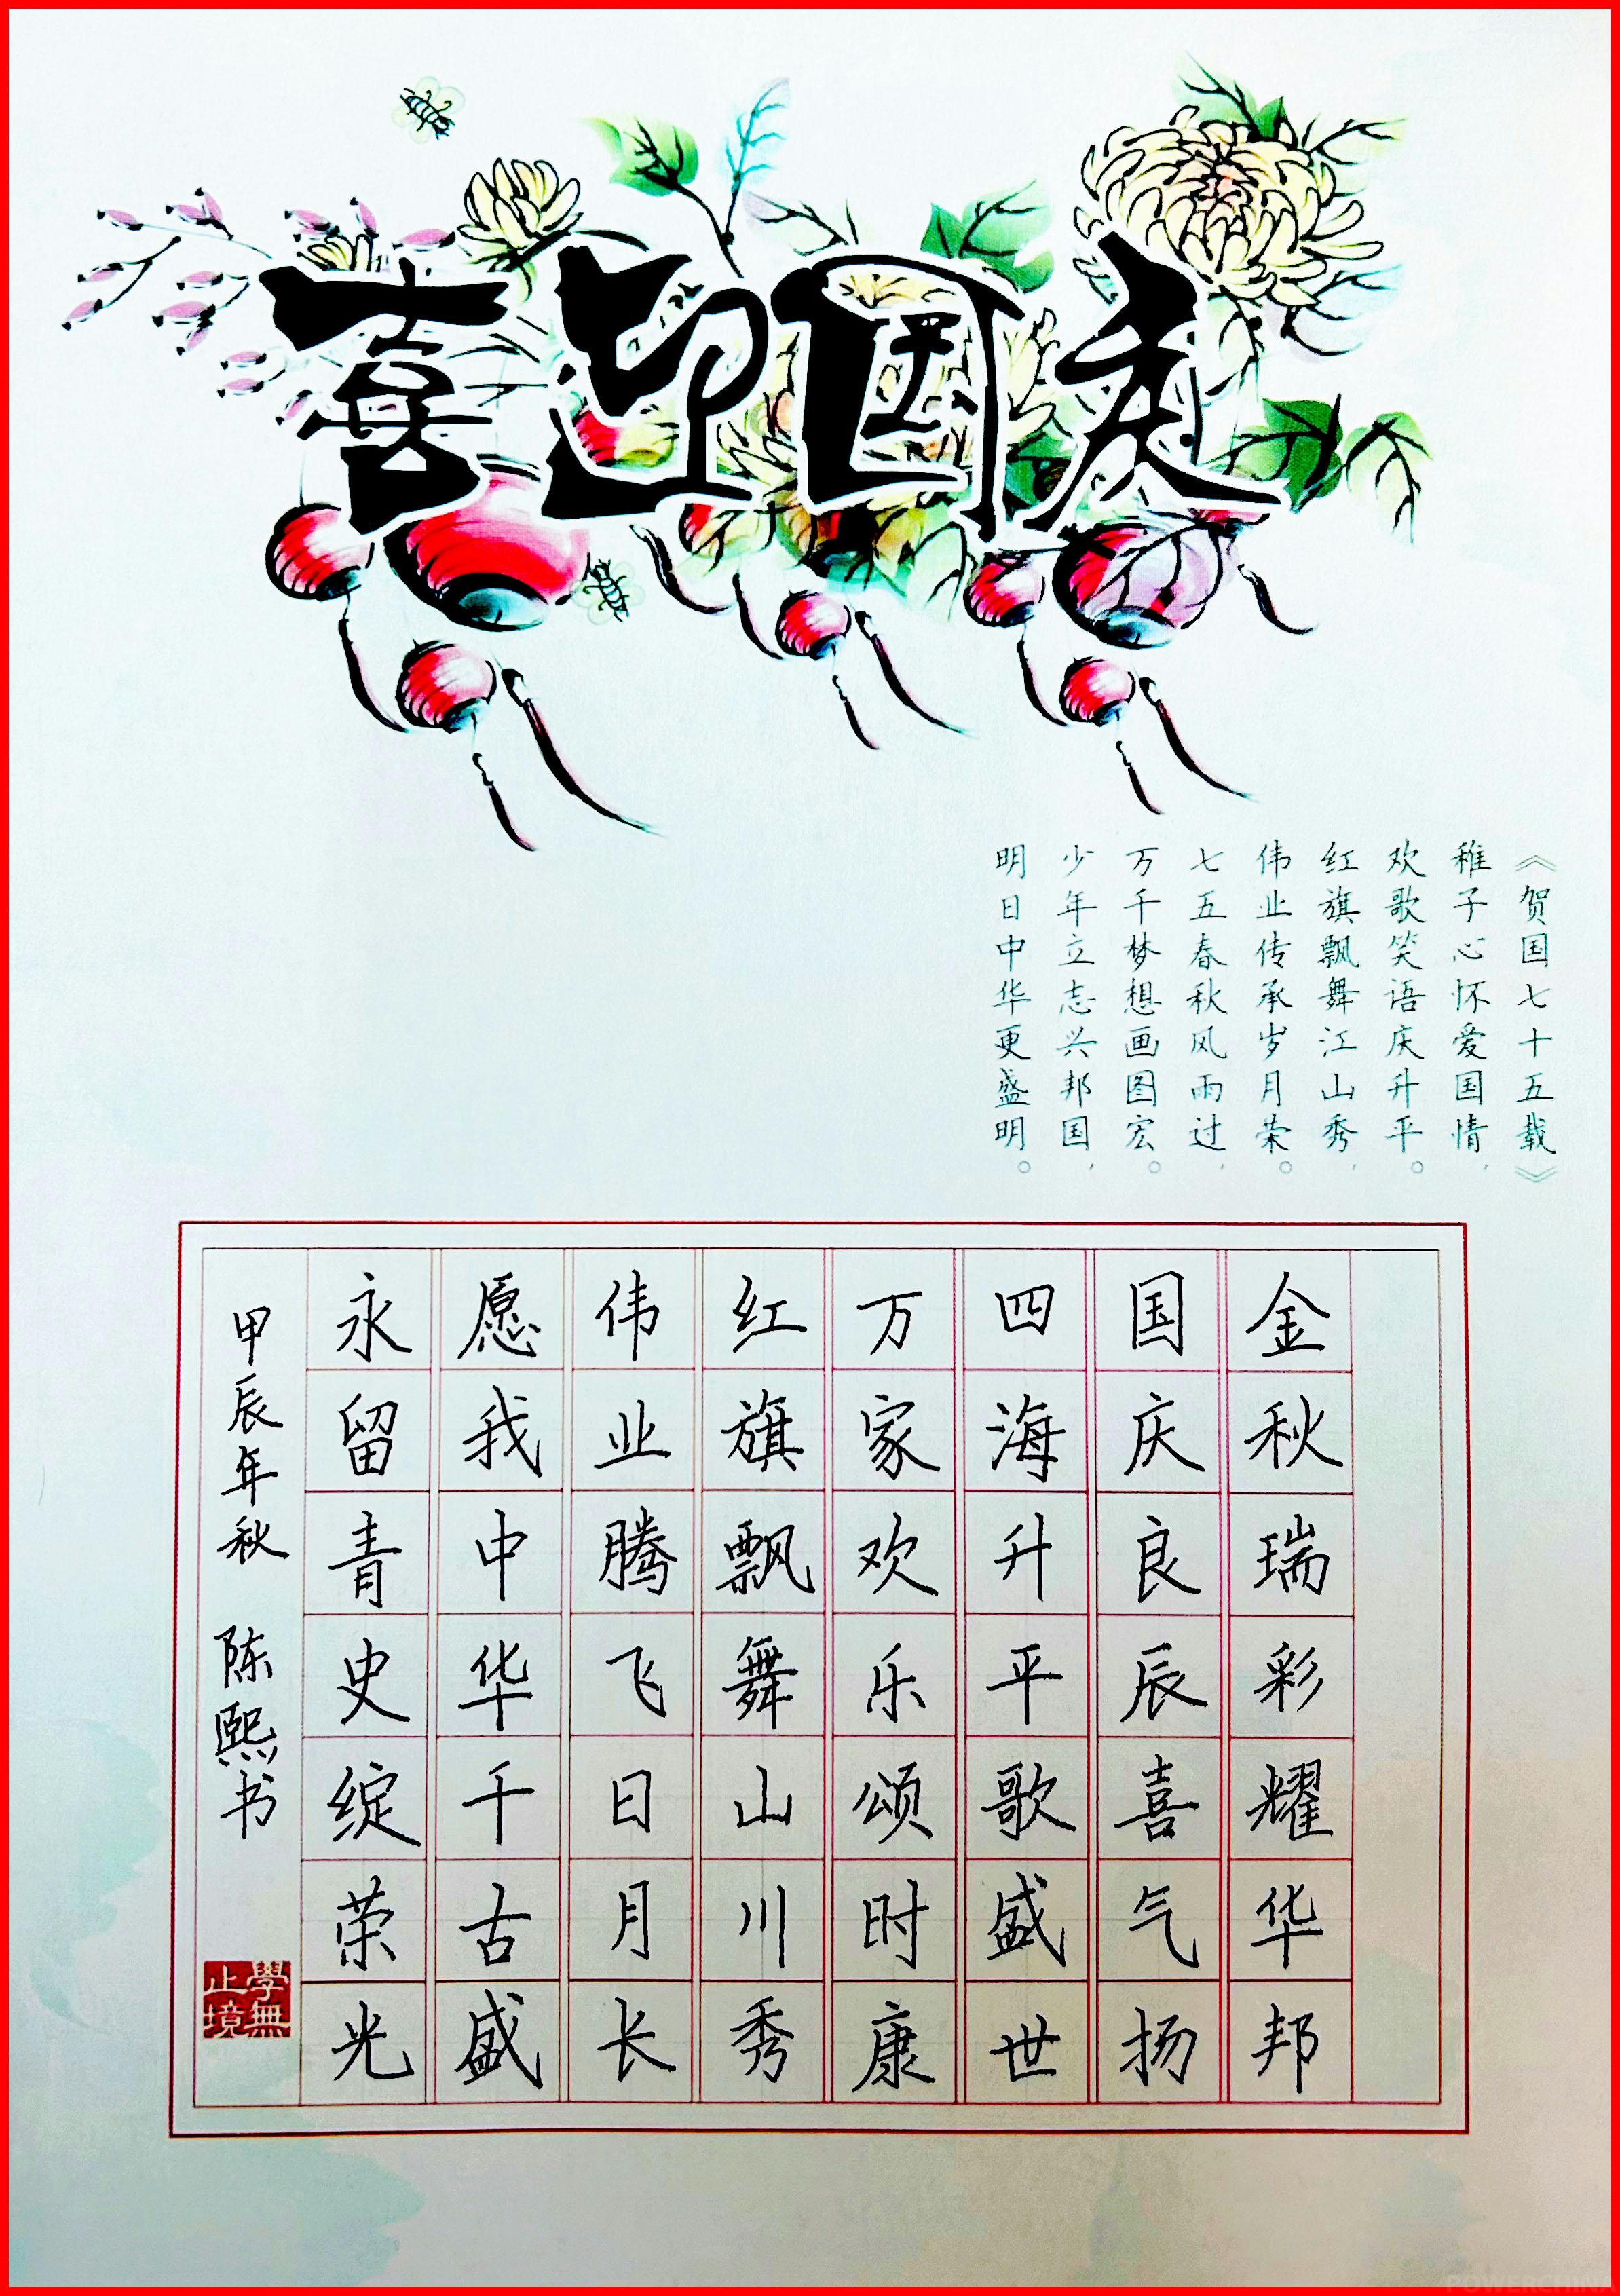 喜迎国庆
《贺国七十五载》
稚子心怀爱国情，
欢歌笑语庆升平。
红旗飘舞江山秀，
伟业传承岁月荣。
七五春秋风雨过，
万千梦想画图宏。
少年立志兴邦国，
明日中华更盛明。
金秋瑞彩耀华邦
国庆良辰喜气扬
四海升平歌盛世
万家欢乐颂时康
红旗飘舞山川秀
伟业腾飞日月长
愿我中华千古盛
永留青史绽荣光
甲辰年秋 陈熙书
學無止境
POWERCHINA